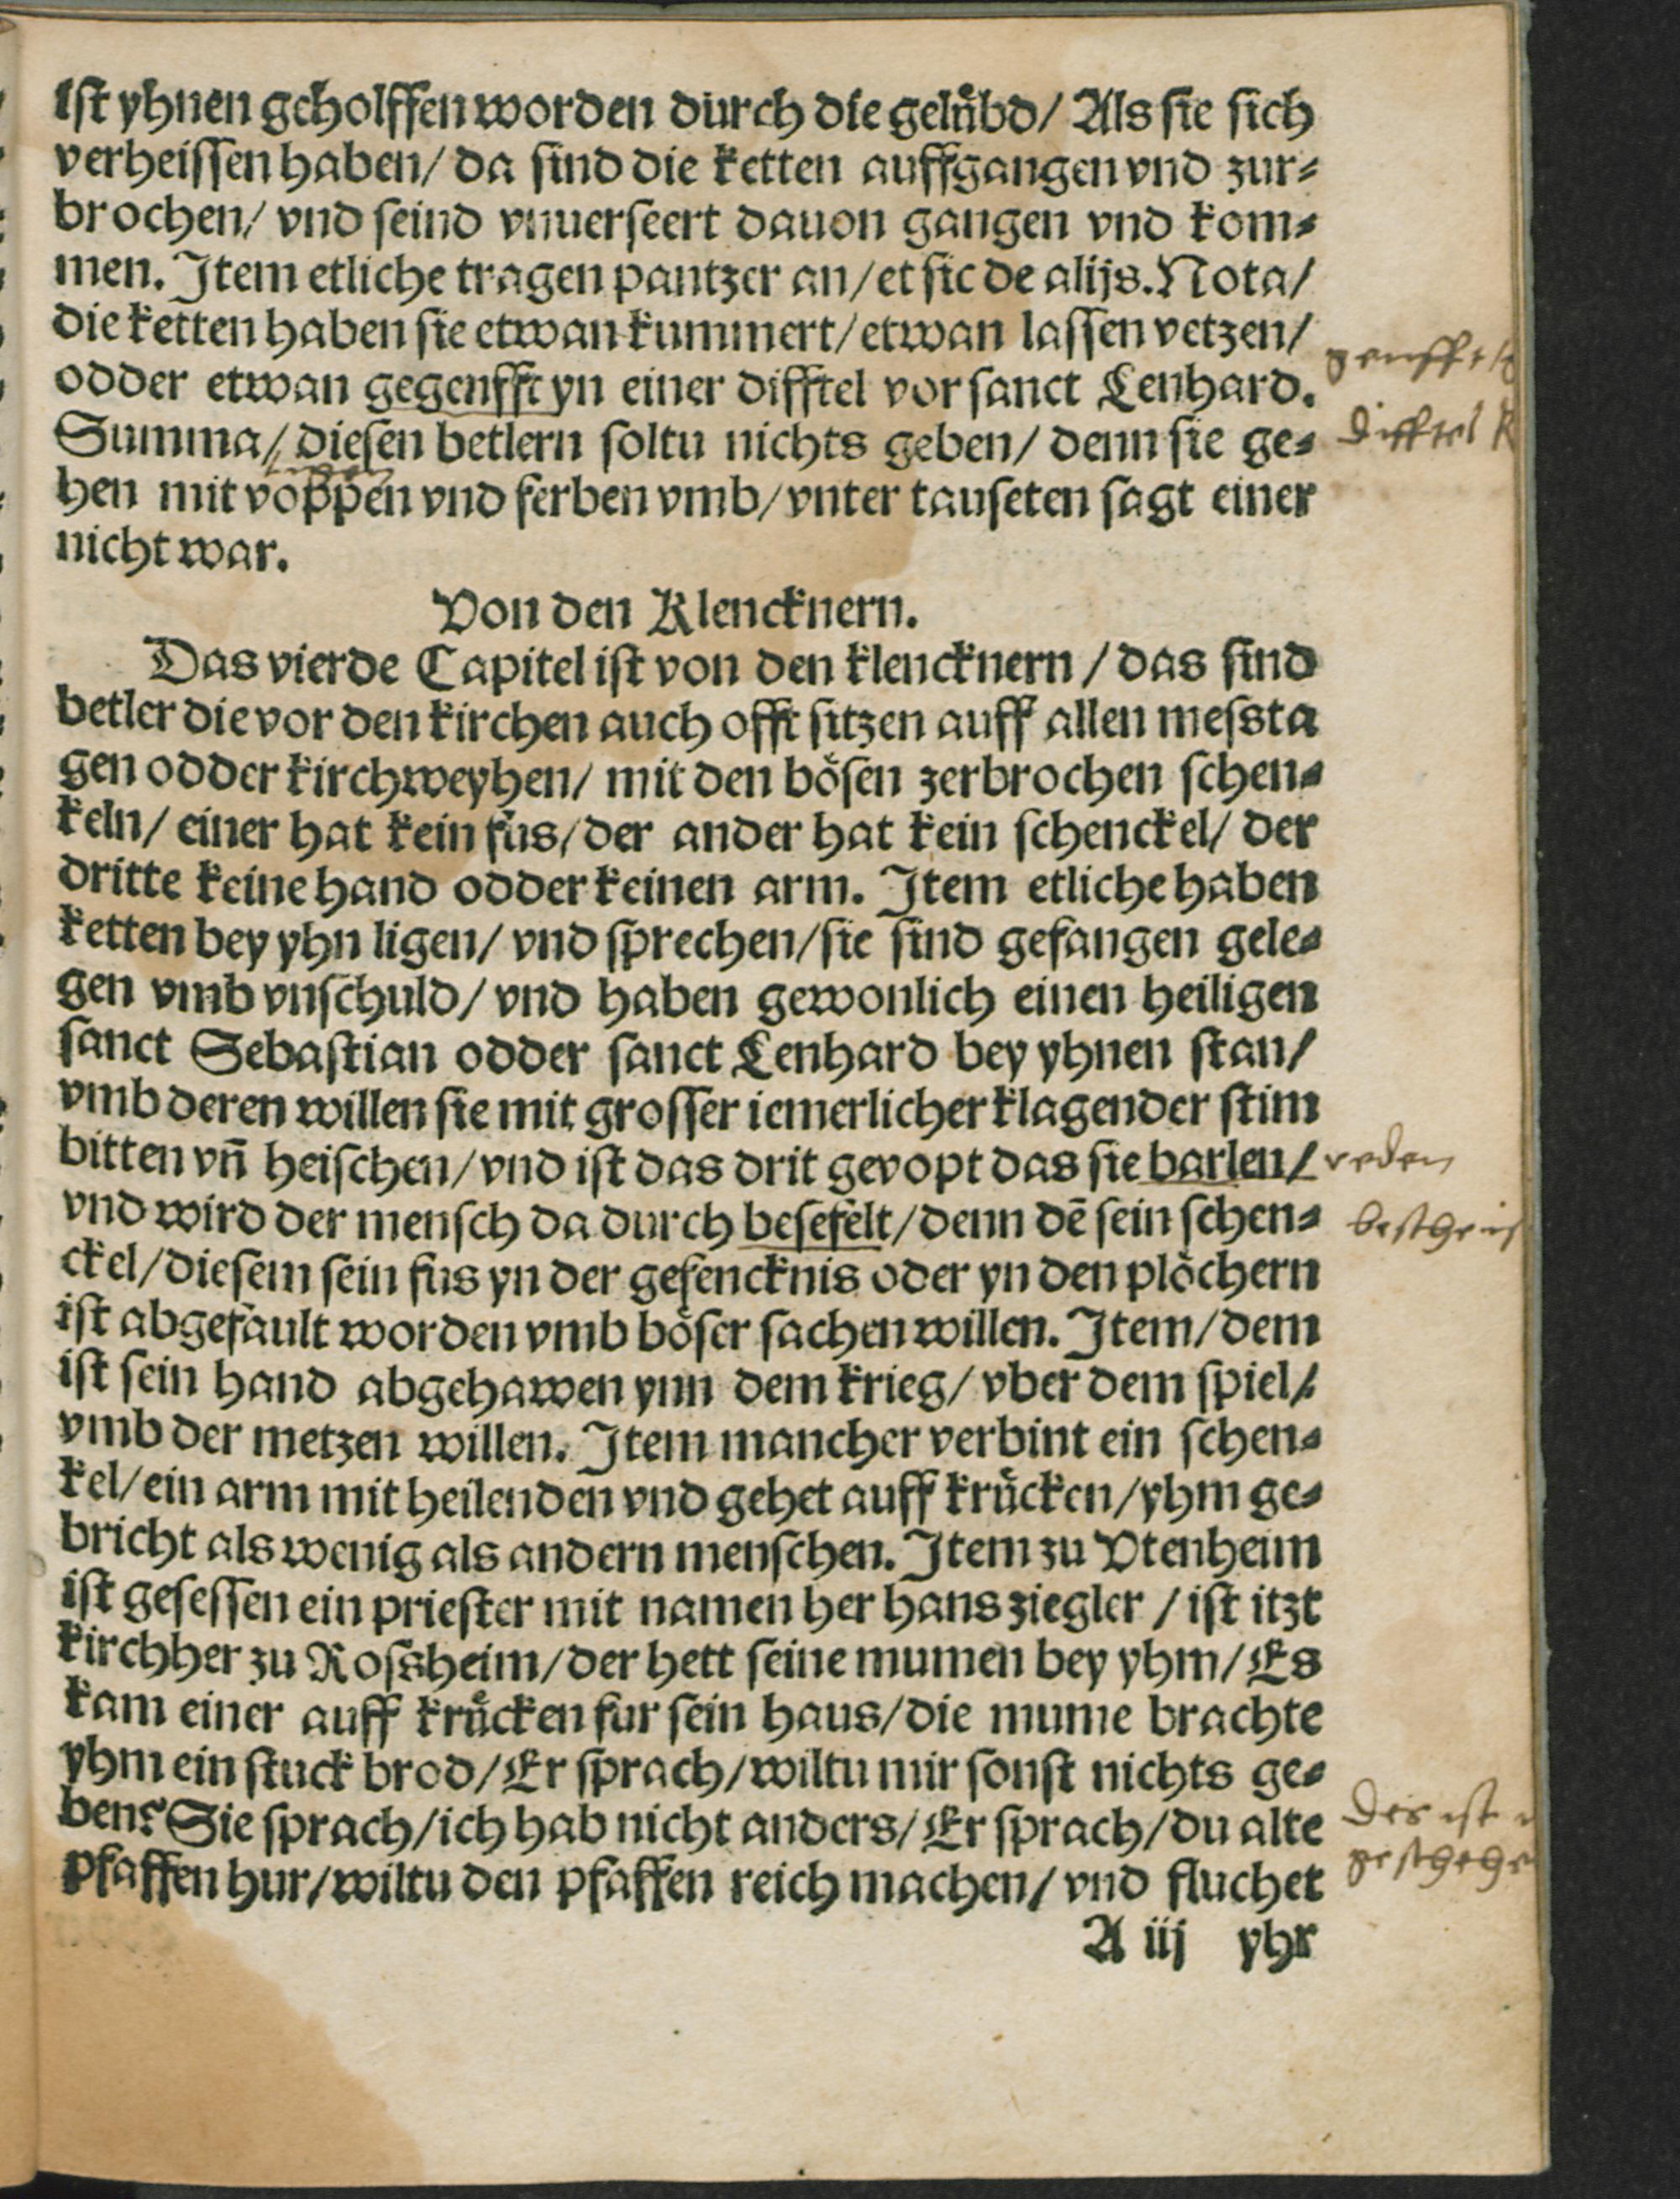 ist yhnen geholffen worden durch die gelůbd/ Als sie sich
verheissen haben/ da sind die ketten auffgangen vnd zur⸗
brochen/ vnd seind vnuerseert dauon gangen vnd kom⸗
men. Item etliche tragen pantzer an/ et sic de alijs. Nota/
die ketten haben sie etwan kummert/ etwan lassen vetzen/
odder etwan gegenfft yn einer difftel vor sanct Lenhard.
Summa/ diesen betlern soltu nichts geben/ denn sie ge⸗
difftel
hen mit voppen vnd ferben vmb/ vnter tauseten sagt einer
nicht war.
Von den Klencknern.
Das vierde Capitel ist von den klencknern/ das sind
betler die vor den kirchen auch offt sitzen auff allen messta
gen odder kirchweyhen/ mit den bösen zerbrochen schen⸗
keln/ einer hat kein fus/ der ander hat kein schenckel/ der
dritte keine hand odder keinen arm. Item etliche haben
ketten bey yhn ligen/ vnd sprechen/ sie sind gefangen gele⸗
gen vmb vnschuld/ vnd haben gewonlich einen heiligen
sanct Sebastian odder sanct Lenhard bey yhnen stan/
vmb deren willen sie mit grosser iemerlicher klagender stim
bitten vn̄ heischen/ vnd ist das drit gevopt das sie barlen/
reden
vnd wird der mensch da durch besefelt/ denn dē sein schen⸗
ckel/ diesem sein fus yn der gefencknis oder yn den plöchern
ist abgefault worden vmb böser sachen willen. Item/ dem
ist sein hand abgehawen ynn dem krieg/ vber dem spiel/
vmb der metzen willen. Item mancher verbint ein schen⸗
kel/ ein arm mit heilenden vnd gehet auff krůcken/ yhm ge⸗
bricht als wenig als andern menschen. Item zu Vtenheim
ist gesessen ein priester mit namen her hans ziegler/ ist itzt
kirchher zu Rossheim/ der hett seine mumen bey yhm/ Es
kam einer auff krůcken fur sein haus/ die mume brachte
yhm ein stuck brod/ Er sprach/ wiltu mir sonst nichts ge⸗
ben? Sie sprach/ ich hab nicht anders/ Er sprach/ du alte
pfaffen hur/ wiltu den pfaffen reich machen/ vnd fluchet
A iij yhr